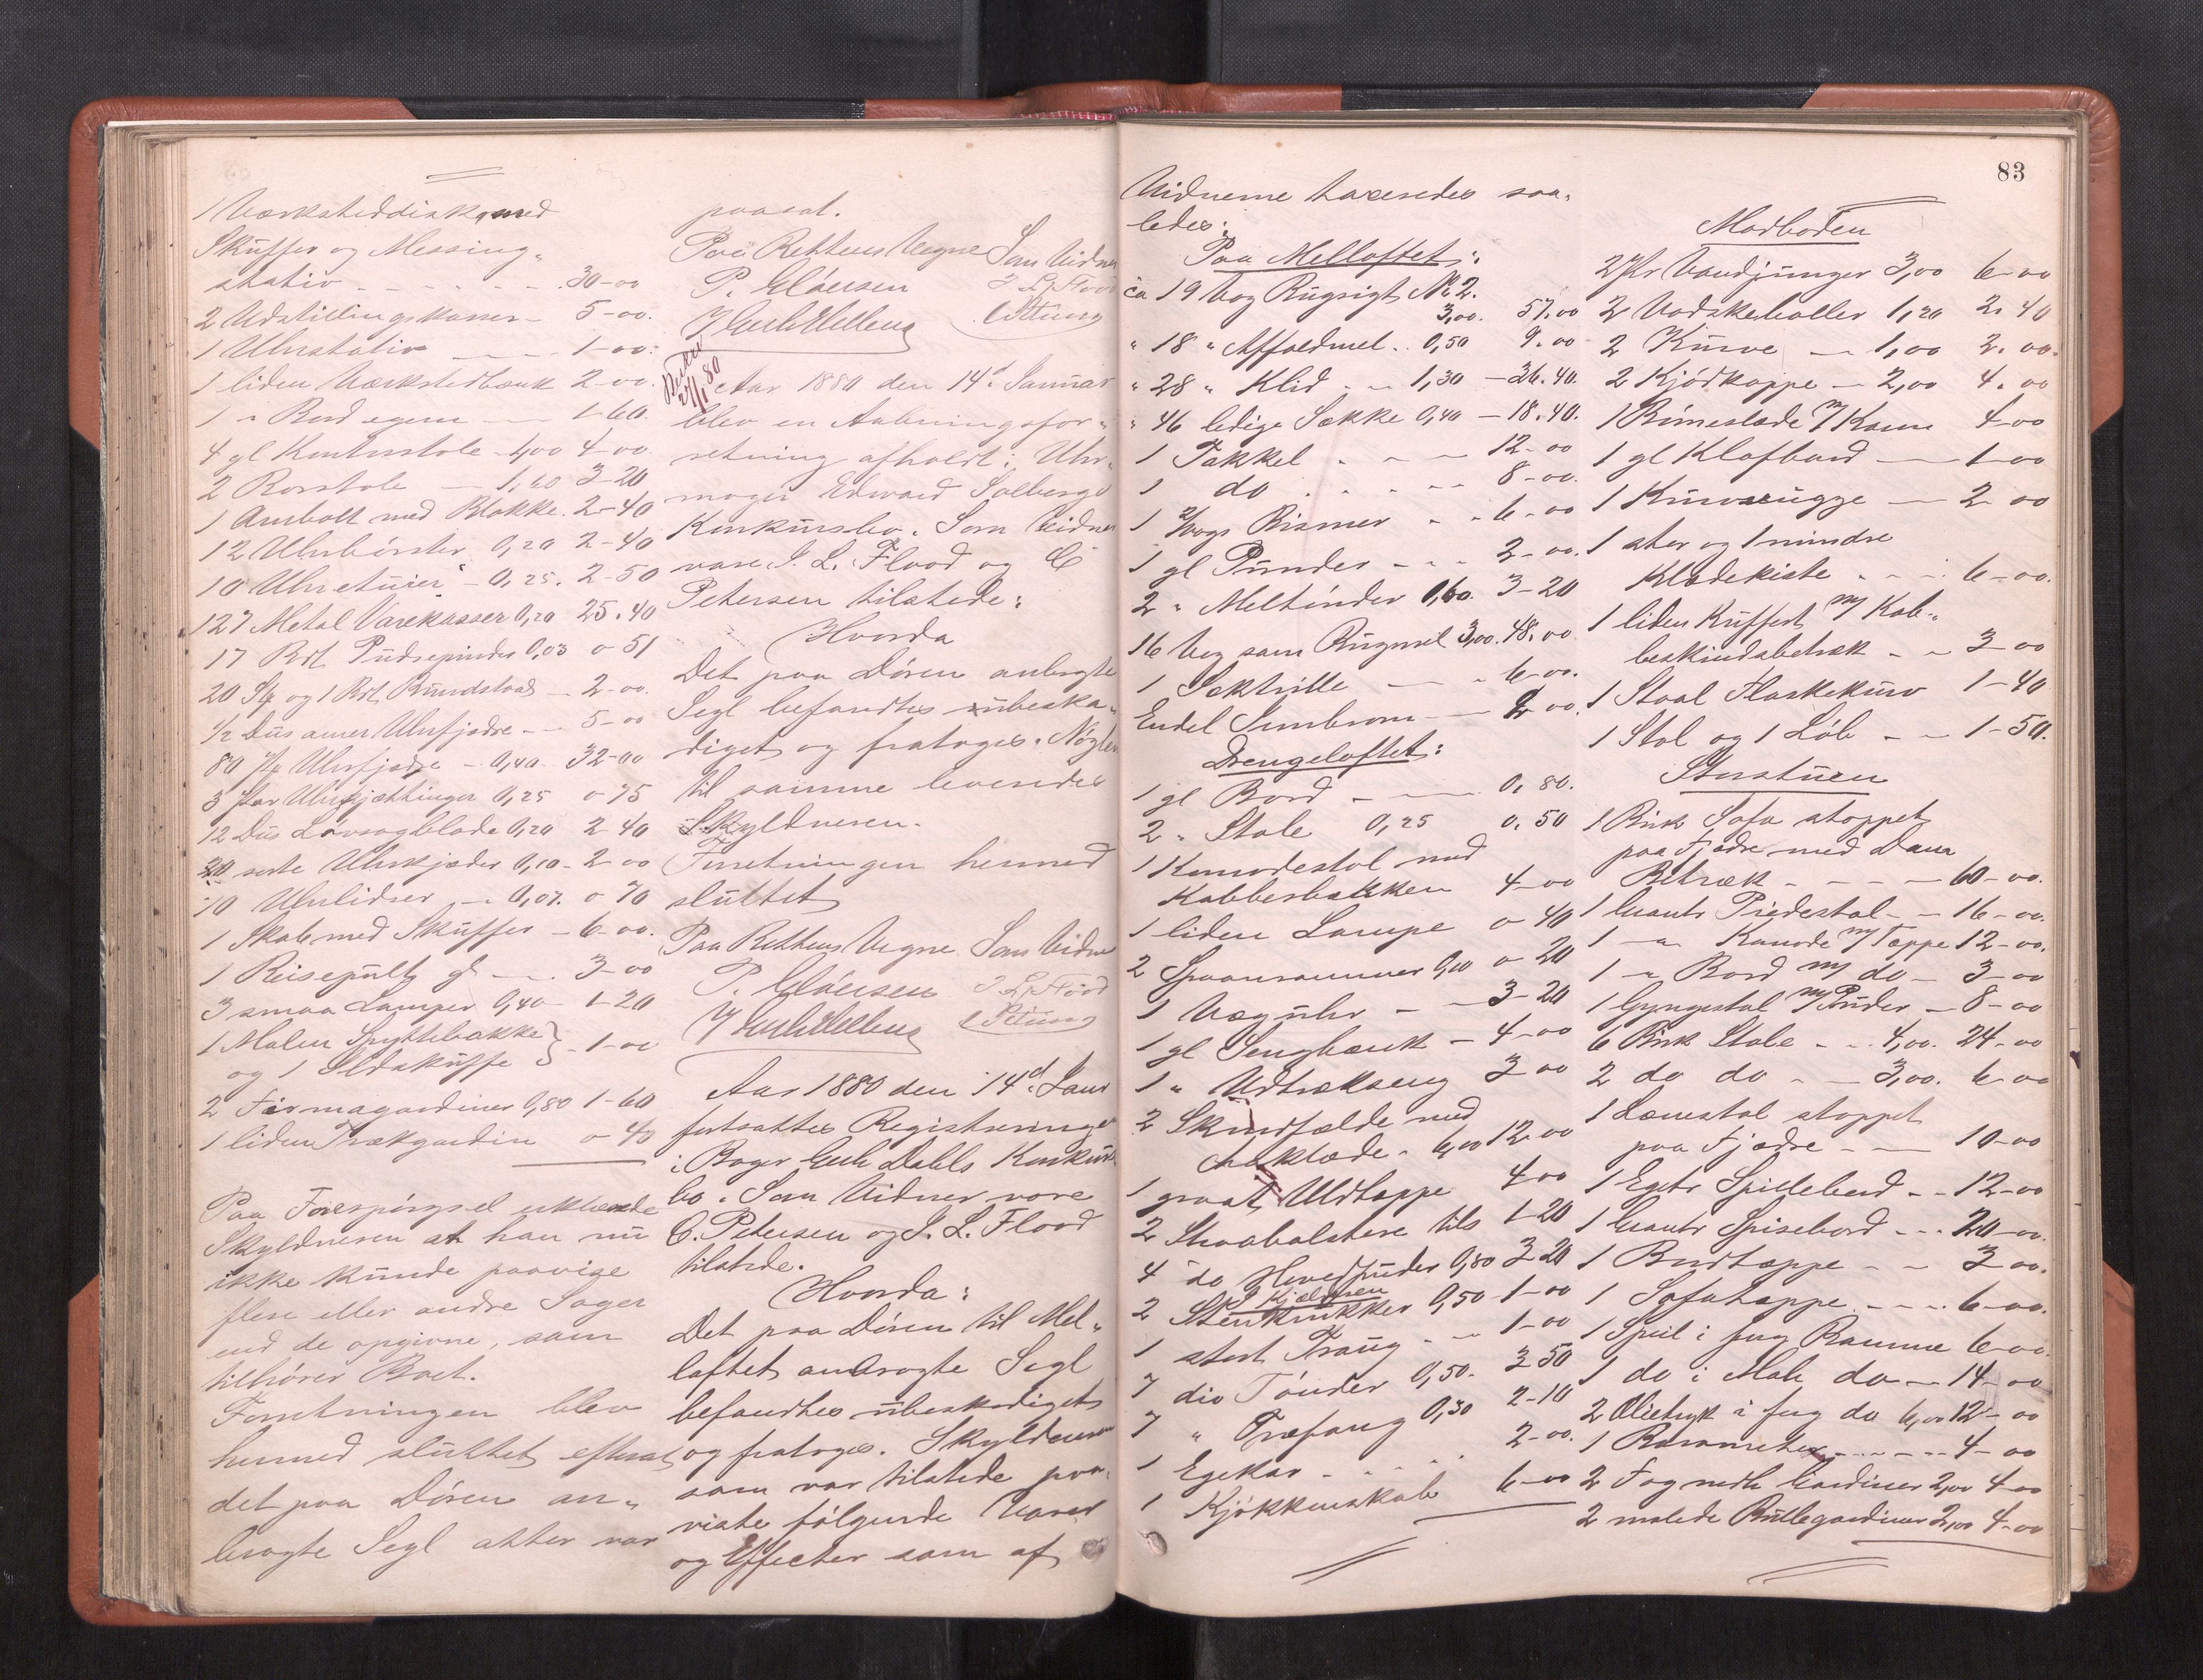 1 Værksteddisk med
Skuffer og Messing-
stativ - - - - - 30-00
2 Udstillingskasser - 5-00.
1 Uhrstativ - - - 1-00.
1 liden Værkstedbænk 2-00.
1 " Bord egem - 1-60.
4 gl Kontorstole 1,00 4-00
2 Rørstole - 1,60 3-20
1 Ambolt med Blokke. 2-40
12 Uhrbørster 0,20 2-40
10 Uhretuier - 0,25. 2-50
127 Metal Varekasser 0,20 25.40
17 Bdt Pudsepinder 0,03 0-51
20 Stk og 1 Bdt Rundstaal - 2-00.
1/2 Dus amer Uhrfjædre - - 5-00
80 Stk Uhrfjædre - 0,40. 32-00
3 par Uhrkjættinger 0,25 0-75
12 Dus Løvsagblade 0,20 2-40
20 sorte Uhrkjæder 0,10 - 2-00
10 Uhrlidser - 0,07. 0-70
1 Skab med Skuffer - 6-00.
1 Reisepult gl - - 3-00
3 smaa Lamper 0,40 - 1-20
1 Malen Spyttebakke
og 1 Ildskuffe } - 1-00
2 Firmagardiner 0,80 1-60
1 liden Trækgardin 0-40
Paa Forespørgsel erklærede
Skyldneren at han nu
ikke kunde paavise
flere eller andre Sager
end de opgivne, som
tilhører Boet.
Forretningen blev
hermed sluttet efterat
det paa Døren an-
bragte Segl atter var
paasat.
Paa Rettens Vegne Som Vidner
P. Claussen J L Flood
C Petersen
14/1 80
Aar 1880 den 14d Januar
blev en Aabningsfor-
retning afholdt i Uhr-
mager Edward Solbergs
Konkursbo. Som Vidner
vare J. L. Flood og C
Petersen tilstede:
Hvorda
Det paa Døren anbragte
Segl befandtes ubeska-
diget og fratoges. Nøglen
til samme leveredes
Skyldneren.
Forretningen hermed
sluttet
Paa Rettens Vegne Som Vidner
P. Claussen J L Flood
C Petersen
Aar 1880 den 14d Janr
fortsattes Registreringen
i Bager Dahls Konkurs
bo. Som Vidner vare
C. Petersen og J. L. Flood
tilstede.
Hvorda:
Det paa Døren til Mel-
loftet anbragte Segl
befandtes ubeskadiget
og fratoges. Skyldneren
som var tilstede paa-
viste følgende Varer
og Effecter som af
83
Vidnerne taxeredes saa-
ledes:
Paa Melloftet:
ca 19 Vog Rugsigt No 2.
3,00. 57.00
" 18 " Affaldmel. 0,50 9.00
" 28 " Klid - - 1,30 - 36.40.
" 46 ledige Sække 0,40 - 18.40.
1 Takkel - - - 12-00
1 do - - - - 8-00.
1 2/Vogs Bismer - - 6-00
1 gl Pundes - - - 2-00.
2 " Meltønder 1,60. 3-20
16 Vog sam Rugmel 3,00. 48.00
1 Sektrille - - 6-00.
Endel - 2 00.
Drengeloftet:
1 gl Bord - - - 0.80.
2 " Stole 0,25 0.50
1 Komodestol med
Kobberbækken 4-00
1 liden Lampe 0-40
2 0,10 0-20
1 Væguhr - - 3-20
1 gl Sengbænk - 4-00
1 " Udtrækseng 3 00
2 Skindfælde med
Aaklæde. 6,00 12-00
1 graat Uldtæppe 4 00
2 Straabolstere tils 1-20
4 do Hovedpuder 0,80 3 20
I Kjælderen
2 Stenkrukker 0,50 1-00
1 stort Traug - - 1-00
7 div Tønder 0,50. 3 50
7 " Træfang 0,30 2-10
1 Egekar - - - 2-00.
1 Kjøkkenskab 6-00
Madboden
2 Par Vandjunger 3,00 6-00
2 Vadskeballer 1,20 2.40
2 Kurve - 1,00 2.00.
2 Kjødkoppe - 2,00 4.00
1 4-00
1 gl Klafbord - 1-00
1 Kurvvugge - 2 00
1 stor og 1 mindre
Klædekiste - - - 6-00.
1 liden Kuffert m/ Kob-
beskindsbetræk - - 3-00
1 Staal Flaskekurv 1-40
1 Stol og 1 Løb - - 1-50.
Storstuen
1 Birk Sofa stoppet
paa Fjædre med Dam
Betræk - - - - 60-00.
1 Piedestal - - 16-00.
1 - " Komode m/ Tæppe 12-00.
1 - " Bord m/ do - 3-00
1 Gyngestol m/ Puder - 8-00
6 Birk Stole - - 4,00. 24-00
2 do do - - 3,00. 6-00
1 Lænestol stoppet
paa Fjædre - - 10-00
1 Egetr Spillebord - - 12-00
1 Spisebord - - - 20-00.
1 Bordtæppe - - 3 00.
1 Sofatæppe - - - 6-00.
1 Speil i fug Ramme 6-00.
1 do i Mah do - 14-00
2 Olietryk i fug do 6,00 12-00
1 Barometer - - - - 4-00
2 Fag nedh Gardiner 2,00 4-00
2 malede Rullegardiner 2,00 4-00